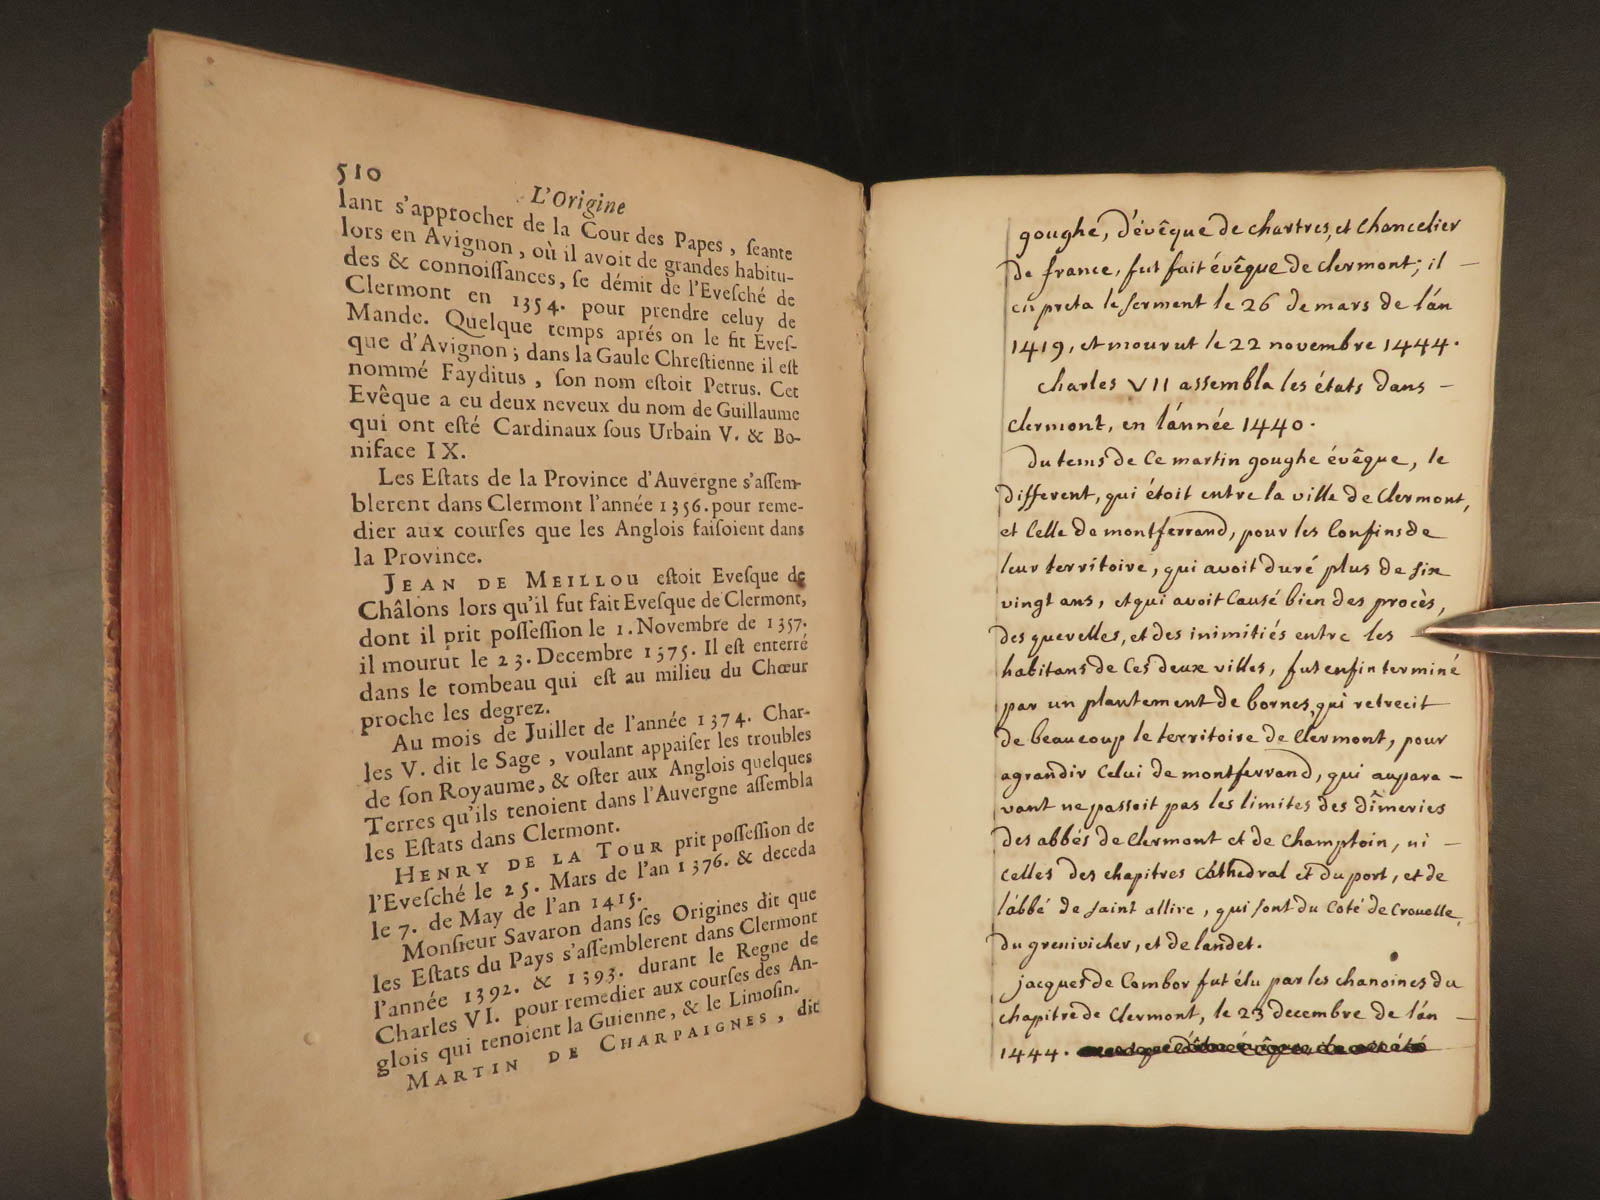 510
L'Origine
lant s'approcher de la Cour des Papes, ſeante
lors en Avignon, où il avoit de grandes habitu-
des & connoiſſances, ſe démit de l'Eveſché de
Clermont en 1354. pour prendre celuy de
Mande. Quelque temps aprés on le fit Eveſ-
que d'Avignon; dans la Gaule Chreſtienne il eſt
nommé Fayditus, ſon nom eſtoit Petrus. Cet
Evêque a eu deux neveux du nom de Guillaume
qui ont eſté Cardinaux ſous Urbain V. & Bo-
niface IX.
Les Eſtats de la Province d'Auvergne s'aſſem-
blerent dans Clermont l'année 1356. pour reme-
dier aux courſes que les Anglois faiſoient dans
la Province.
JEAN DE MEILLOU eſtoit Eveſque de
Châlons lors qu'il fut fait Eveſque de Clermont,
dont il prit poſſeſſion le 1. Novembre de 1357.
il mourut le 23. Decembre 1375. Il eſt enterré
dans le tombeau qui eſt au milieu du Chœur
proche les degrez.
Au mois de Juillet de l'année 1374. Char-
les V. dit le Sage, voulant appaiſer les troubles
de ſon Royaume, & oſter aux Anglois quelques
Terres qu'ils tenoient dans l'Auvergne aſſembla
les Eſtats dans Clermont.
HENRY DE LA TOUR prit poſſeſſion de
l'Eveſché le 25. Mars de l'an 1376. & deceda
le 7. de May de l'an 1415.
Monſieur Savaron dans ſes Origines dit que
les Eſtats du Pays s'aſſemblerent dans Clermont
l'année 1392. & 1393. durant le Regne de
Charles VI. pour remedier aux courſes des An-
glois qui tenoient la Guienne, & le Limoſin.
MARTIN DE CHARPAIGNES, dit
goughe, d'évêque de chartres, et chancelier
de france, fut fait évêque de clermont; il -
en preta le serment le 26 de mars de l'an
1419, et mourut le 22 novembre 1444.
charles VII assembla les états dans -
clermont, en l'année 1440.
du tems de ce martin goughe évêque, le
different, qui étoit entre la ville de clermont,
et celle de montferrand, pour les confins de
leur territoire, qui avoit duré plus de six
vingt ans, et qui avoit causé bien des procès,
des querelles, et des inimitiés entre les -
habitans de ces deux villes, fut enfin terminé
par un plantement de bornes, qui retrecit
de beaucoup le territoire de clermont, pour
agrandir celui de montferrand, qui aupara -
vant ne passoit pas les limites des dîmeries
des abbés de clermont et de champtoin, ni -
celles des chapitres cathedral et du port, et de
l'abbé de saint allire, qui sont du coté de crouelle,
du grenivicher, et de landet.
jacques de combor fut élu par les chanoines du
chapitre de clermont, le 23 decembre de l'an -
1444.